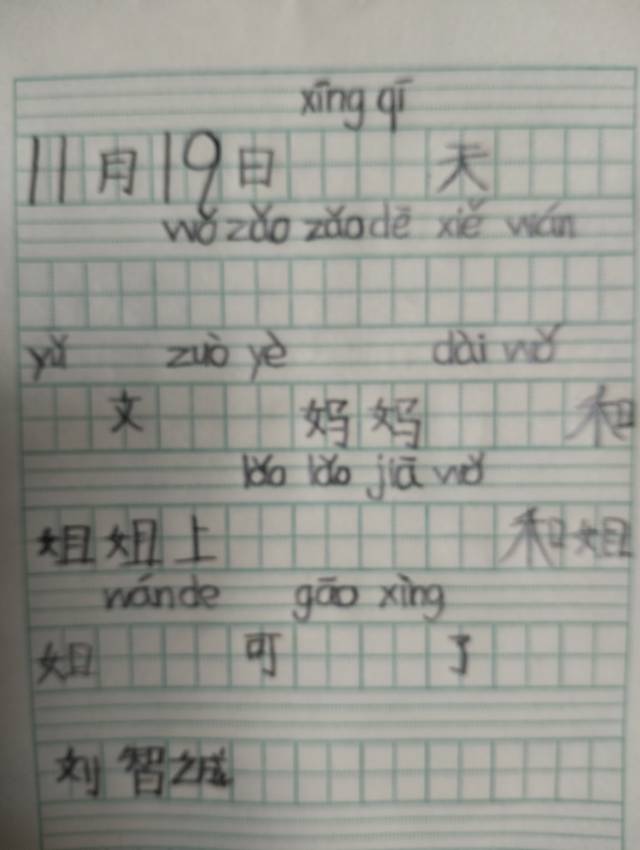 xīng qī
11月19日 天
wǒ zǎo zǎo dē xiě wán
yǔ zuò yè dài wǒ
文 妈妈 和
lǎo lǎo jiā wǒ
姐姐上 和姐
wán de gāo xìng
姐 可 了
刘智